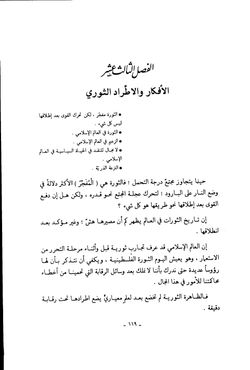 الفصل الثالث عشر
الأفكار والاطراد الثوري
* الثورة مفطر ، لكن تحرك القوى بعد إطلاقها ليس كل شيء .
* الثورة في العالم الإسلامي .
* الرجم في العالم الإسلامي .
* لا مجال للنقد في الحياة السياسية في العالم الإسلامي .
* النزعة الذرية .
حينما يتجاوز مجتمع درجة التحمل ؛ فالثورة هي ( المُفَجِّر ) الأكثر دلالة في
وضع النار على البارود ؛ لتحرك عجلة المجتمع نحو قدره ، ولكن هل إن دفع
القوى بعد إطلاقها نحو طريقها هو كل شيء ؟
إن تاريخ الثورات في العالم يظهر كم أن مصيرها هشّ ؛ وغير مؤكد بعد
انطلاقها .
إن العالم الإسلامي قد عرف تجارب ثورية قبل وأثناء مرحلة التحرر من
الاستعمار ، وهو يعيش اليوم الثورة الفلسطينية ، ويكفي أن نتذكر بأن لها
رؤوساً عديدة حتى ندرك بأننا لا نملك بعد وسائل الرقابة التي تحمينا من أخطاء
محاكاتنا في هذا المجال .
فالظاهرة الثورية لم تخضع بعد لعلم معياريّ يضع اطرادها تحت رقابة
دقيقة .
- ١١٩ -